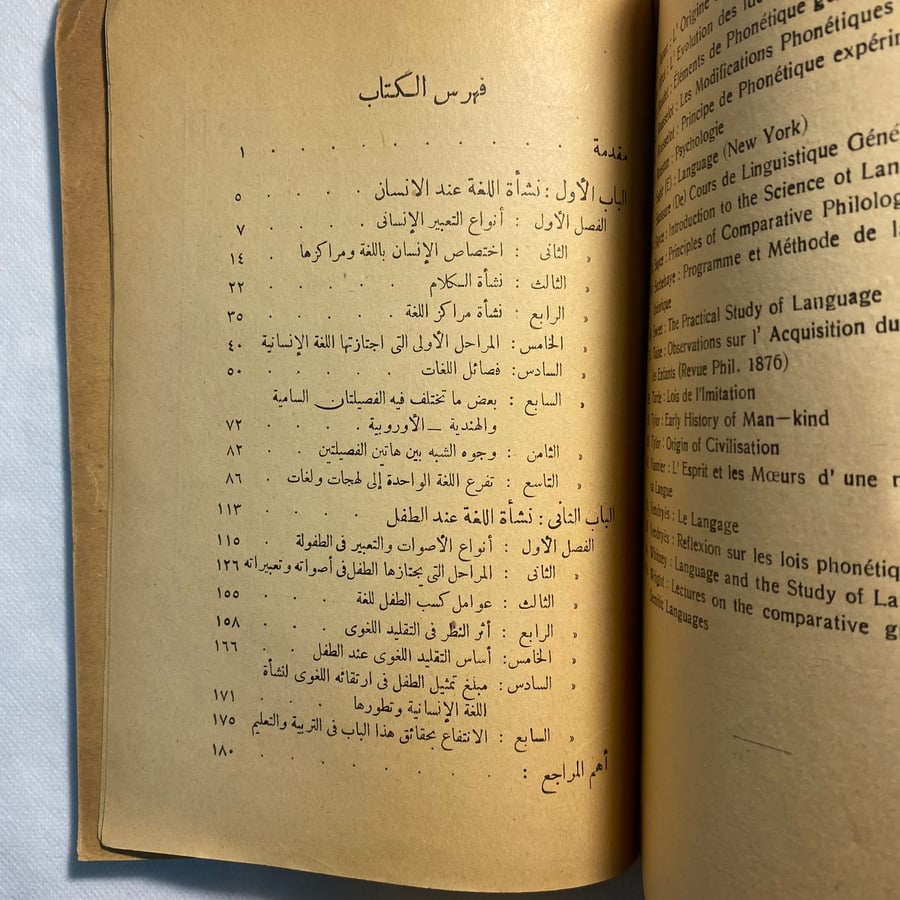 فهرس الكتاب
مقدمة . . . . . . . . ١
الباب الأول : نشأة اللغة عند الانسان . . . . ٥
الفصل الأول : أنواع التعبير الإنسانى . . . . ٧
« الثانى : اختصاص الإنسان باللغة ومراكزها . . ١٤
« الثالث : نشأة الكلام . . . . . ٢٢
« الرابع : نشأة مراكز اللغة . . . . ٣٥
« الخامس : المراحل الأولى التى اجتازتها اللغة الإنسانية ٤٠
« السادس : فصائل اللغات . . . . ٥٠
« السابع : بعض ما تختلف فيه الفصيلتان السامية
والهندية ــ الأوروبية . . . . ٧٢
« الثامن : وجوه الشبه بين هاتين الفصيلتين . . ٨٢
« التاسع : تفرع اللغة الواحدة إلى لهجات ولغات . ٨٦
الباب الثانى : نشأة اللغة عند الطفل . . . . ١١٣
الفصل الأول : أنواع الأصوات والتعبير فى الطفولة . ١١٥
« الثانى : المراحل التى يجتازها الطفل فى أصواته وتعبيراته ١٢٦
« الثالث : عوامل كسب الطفل للغة . . . ١٥٥
« الرابع : أثر النظر فى التقليد اللغوى . . . ١٥٨
« الخامس : أساس التقليد اللغوى عند الطفل . . ١٦٦
« السادس : مبلغ تمثيل الطفل فى ارتقائه اللغوى لنشأة
اللغة الإنسانية وتطورها . . . ١٧١
« السابع : الانتفاع بحقائق هذا الباب فى التربية والتعليم ١٧٥
أهم المراجع : . . . . . . . ١٨٠
: L' Origine
: L' Evolution des
: Éléments de Phonétique
: Les Modifications Phonétiques
: Principe de Phonétique
: Psychologie
(E) : Language (New York)
(De) Cours de Linguistique
: Introduction to the Science ot
: Principles of Comparative
: Programme et Méthode de
Sweet : The Practical Study of Language
Taine : Observations sur l' Acquisition du
les Enfants (Revue Phil. 1876)
Tarde : Lois de l'Imitation
Tylor : Early History of Man—kind
Tylor : Origin of Civilisation
: L' Esprit et les Mœurs d' une
Langue
Vendryès : Le Langage
Vendryès : Reflexion sur les lois
Whitney : Language and the Study of
Wright : Lectures on the comparative
Semitic Languages